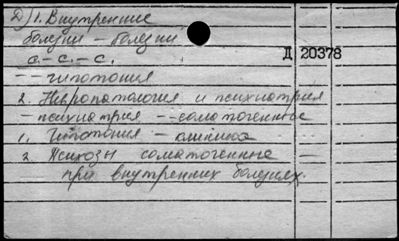 Д) 1. Внутренние
болезни – болезни
с. – с. – с.
Д 20378
– – гипотония
2. Невропатология и психиатрия
– психиатрия – – соматогенные
1. Гипотония – клиника
2. Психозы соматогенные –
при внутренних болезнях.